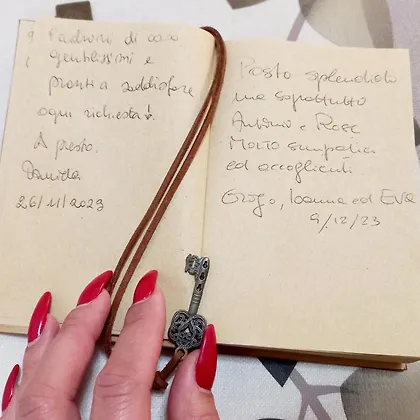 Padroni di casa
gentilissimi e
pronti a soddisfare
ogni richiesta!
A presto.
Daniela
26/11/2023
Posto splendido
ma soprattutto
Antonio e Rose
Molto simpatici
ed accoglienti
Ioanna ed Eva
9/12/23